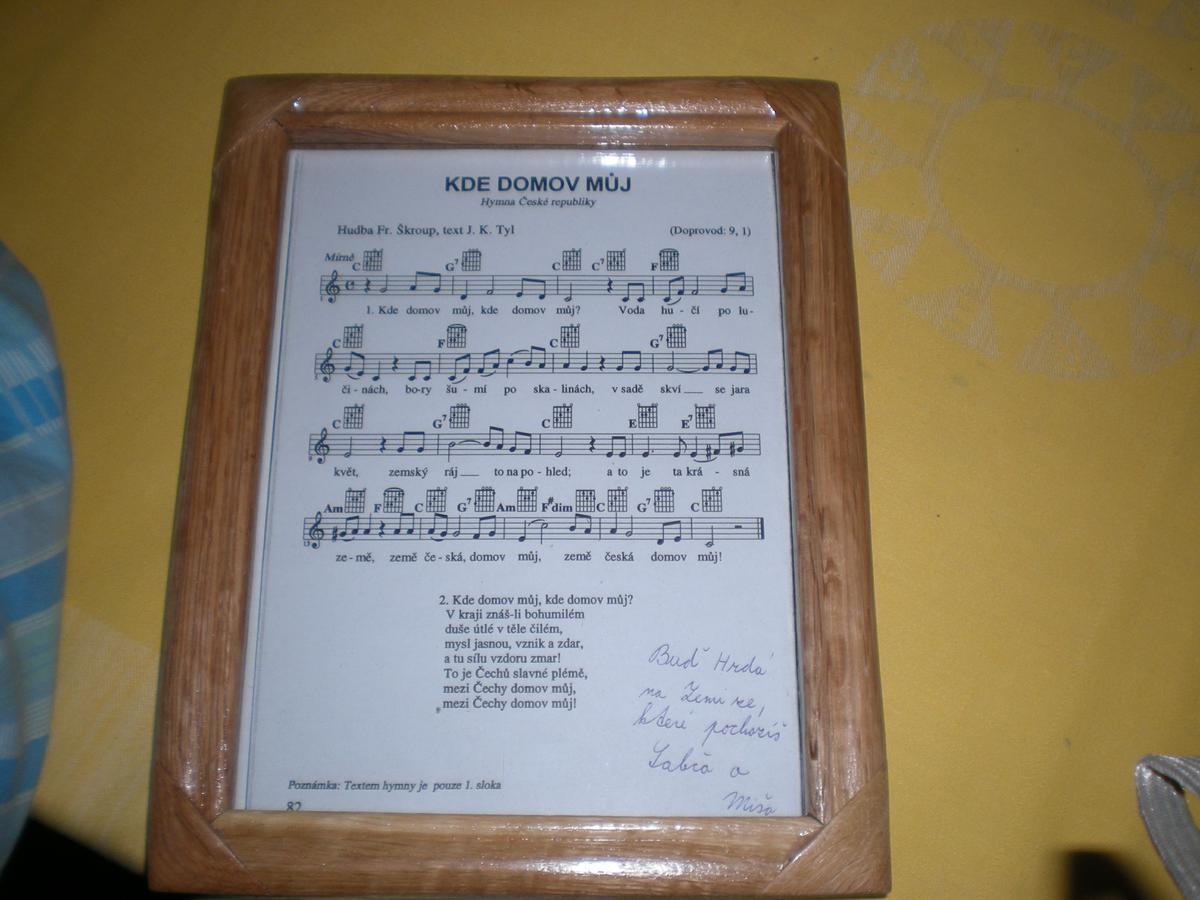 KDE DOMOV MŮJ
Hymna České republiky
Hudba Fr. Škroup, text J. K. Tyl (Doprovod: 9, 1)
Mírně
C G7 C C7 F
1. Kde domov můj, kde domov můj? Voda hu - čí po lu-
C F C G7
či - nách, bo-ry šu - mí po ska - linách, v sadě skví se jara
C G7 C E E7
květ, zemský ráj to na po - hled; a to je ta krá - sná
Am F C G7 Am F#dim C G7 C
ze - mě, země če - ská, domov můj, země česká domov můj!
2. Kde domov můj, kde domov můj?
V kraji znáš-li bohumilém
duše útlé v těle čilém,
mysl jasnou, vznik a zdar,
a tu sílu vzdoru zmar!
To je Čechů slavné plémě,
mezi Čechy domov můj,
mezi Čechy domov můj!
Buď Hrdá
na Zemi ze,
které pocházíš
a
Míša
Poznámka: Textem hymny je pouze 1. sloka
82